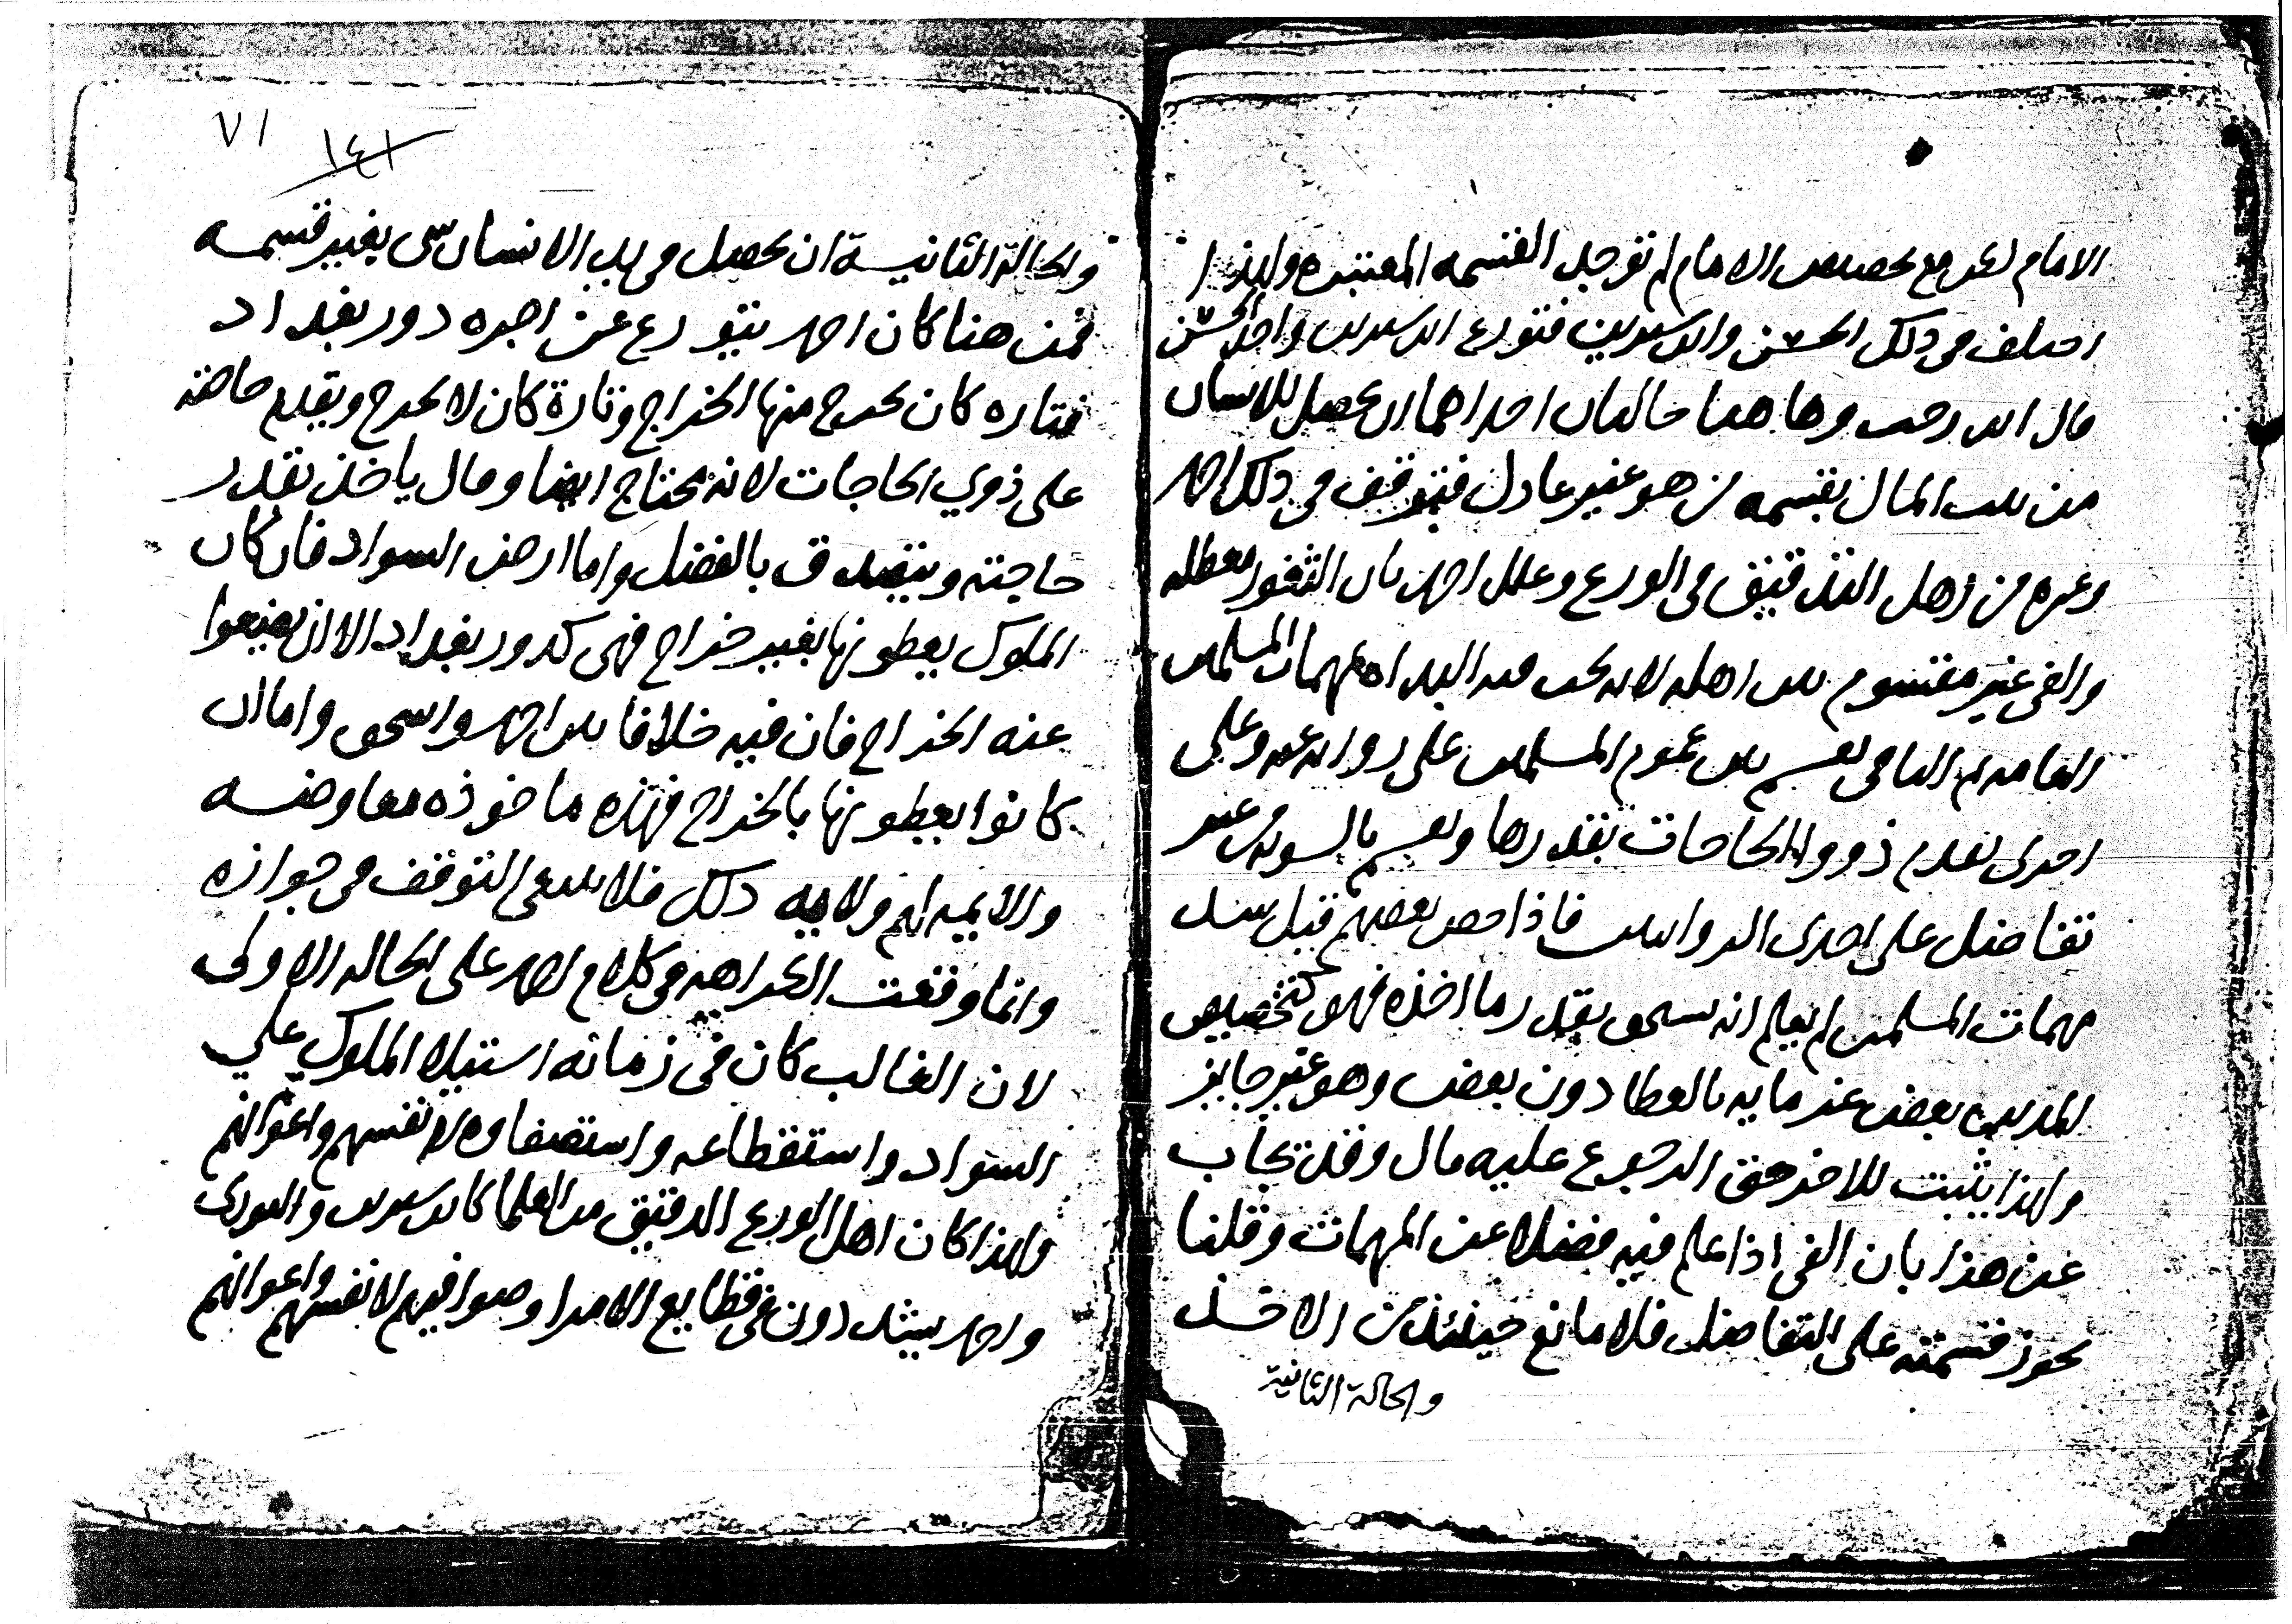 الامام لغيره مع تخصيص الامام لم توجد القسمه المعتبره ولهذا
اختلف في ذلك الحسن وابن سيرين فتورع ابن سيرين واخذ الحسن
قال ابن رجب وهاهنا حالتان احداهما ان يحصل للانسان
من بيت المال بقسمه من هو غير عادل فيتوقف في ذلك احمد
وغيره من اهل التدقيق في الورع وعلل احمد بان الثغور معطله
والفي غير مقسوم بين اهله لانه يجب فيه البداه بمهمات المسلمين
العامه ثم الباقي يقسم بين عموم المسلمين على روايه عنه وعلى
اخرى يقدم ذووا الحاجات بقدرها ويقسم بالسويه من غير
تفاضل على احدى الروايتين فاذا خص بعضهم قبل سد
مهمات المسلمين لم يعلم انه يستحق بقدر ما اخذه فهو كتخصيص
المدين بعض غرمايه بالعطا دون بعض وهو غير جايز
ولهذا يثبت للاخر حق الرجوع عليه قال وقد يجاب
عن هذا بان الفي اذا علم فيه فضلا عن المهمات وقلنا
يجوز قسمته على التفاضل فلا مانع حينئذ من الاخذ
والحالة الثانية
٧١
١٤١
والحالة الثانية ان يحصل في يد الانسان شي بغير قسمه
فمن هنا كان احمد يتورع عن اجره دور بغداد
فتاره كان يخرج منها الخراج وتارة كان لا يخرج ويقدم حاجته
على ذوي الحاجات لانه محتاج ايضا وقال ياخذ بقدر
حاجته ويتصدق بالفضل واما ارض السواد فان كان
الملوك يعطونها بغير خراج فهي كدور بغداد الا ان يضيعوا
عنه الخراج فان فيه خلافا بين احمد واسحق واما ان
كانوا يعطونها بالخراج فهذه ماخوذه معاوضه
والايمه لهم ولايه ذلك فلا ينبغي التوقف في جوازه
وانما وقعت الكراهه في كلام احمد على الحاله الاولى
لان الغالب كان في زمانه استيلا الملوك علي
السواد واستقطاعه واستصفاوه لانفسهم واعوانهم
ولهذا كان اهل الورع الدقيق من العلما كابن سيرين والثوري
واحمد يشددون في قطايع الامرا وصوافيهم لانفسهم واعوانهم